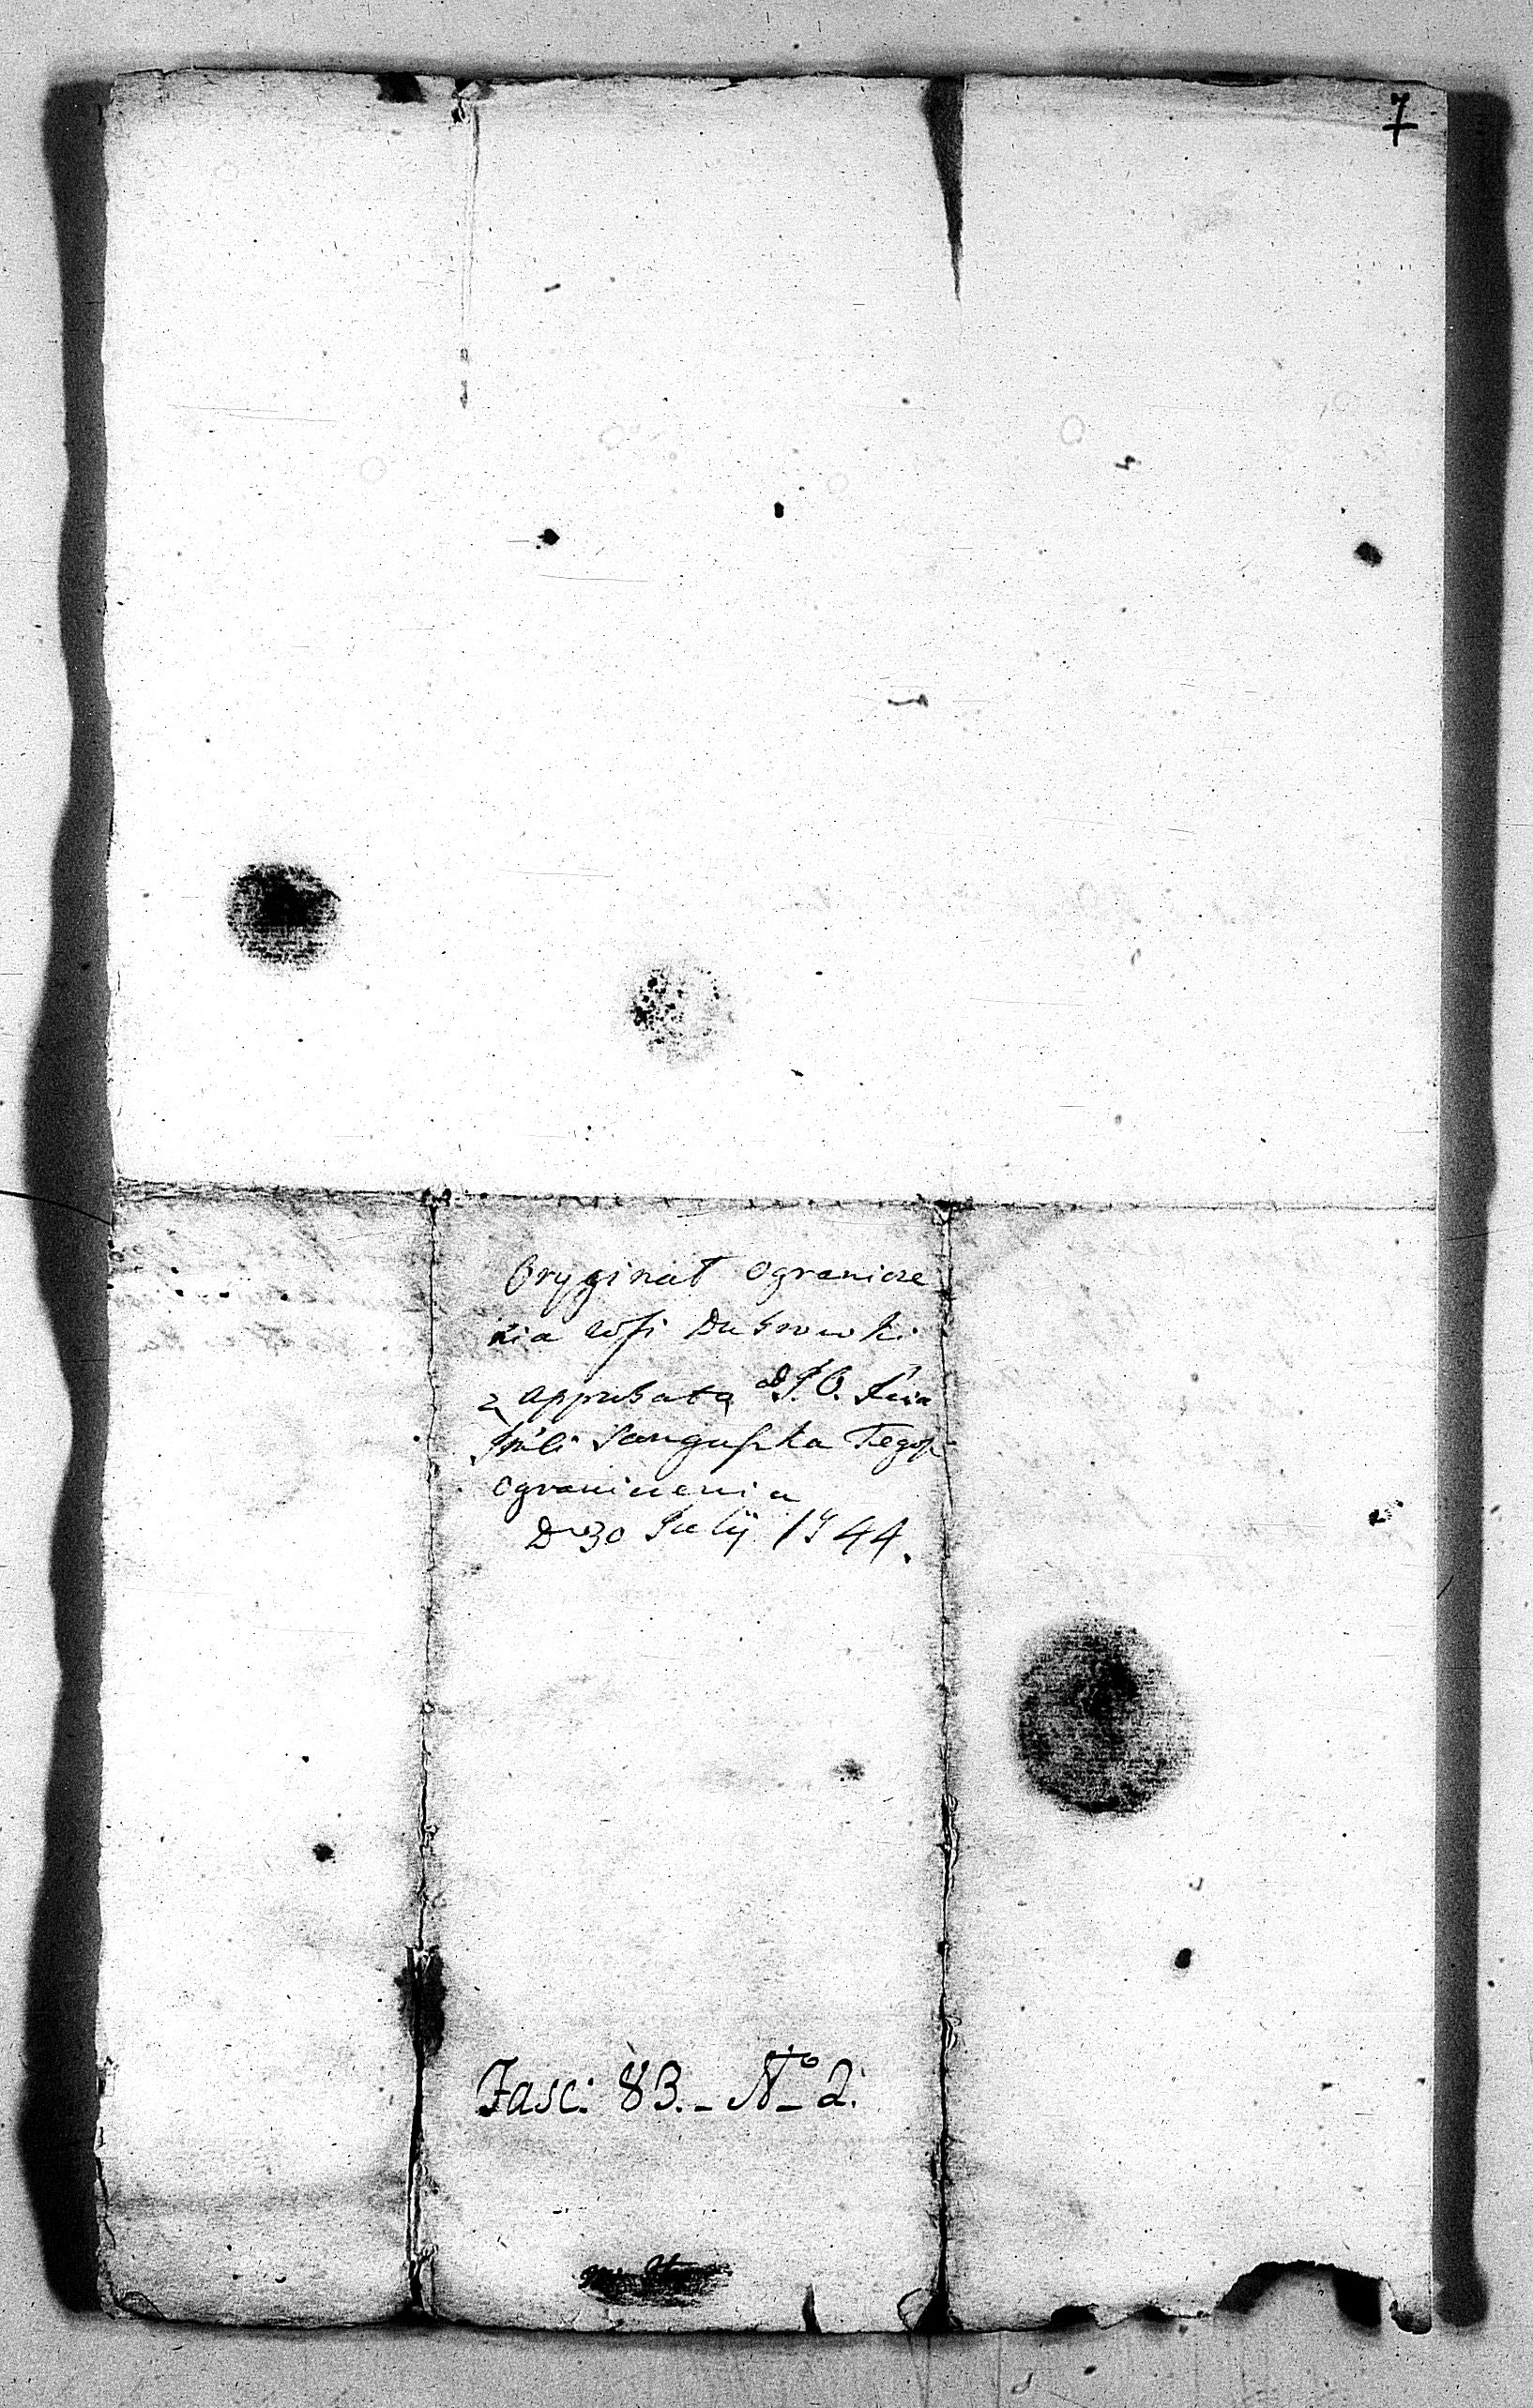 7
Oryginał Ogranicze
nia wsi Dubrowki
z approbatą od J. O. Xcia
Sanguszka Tegoż
ograniczenia
D. 30 Julij 1744.
Fasc: 83. _ No 2.